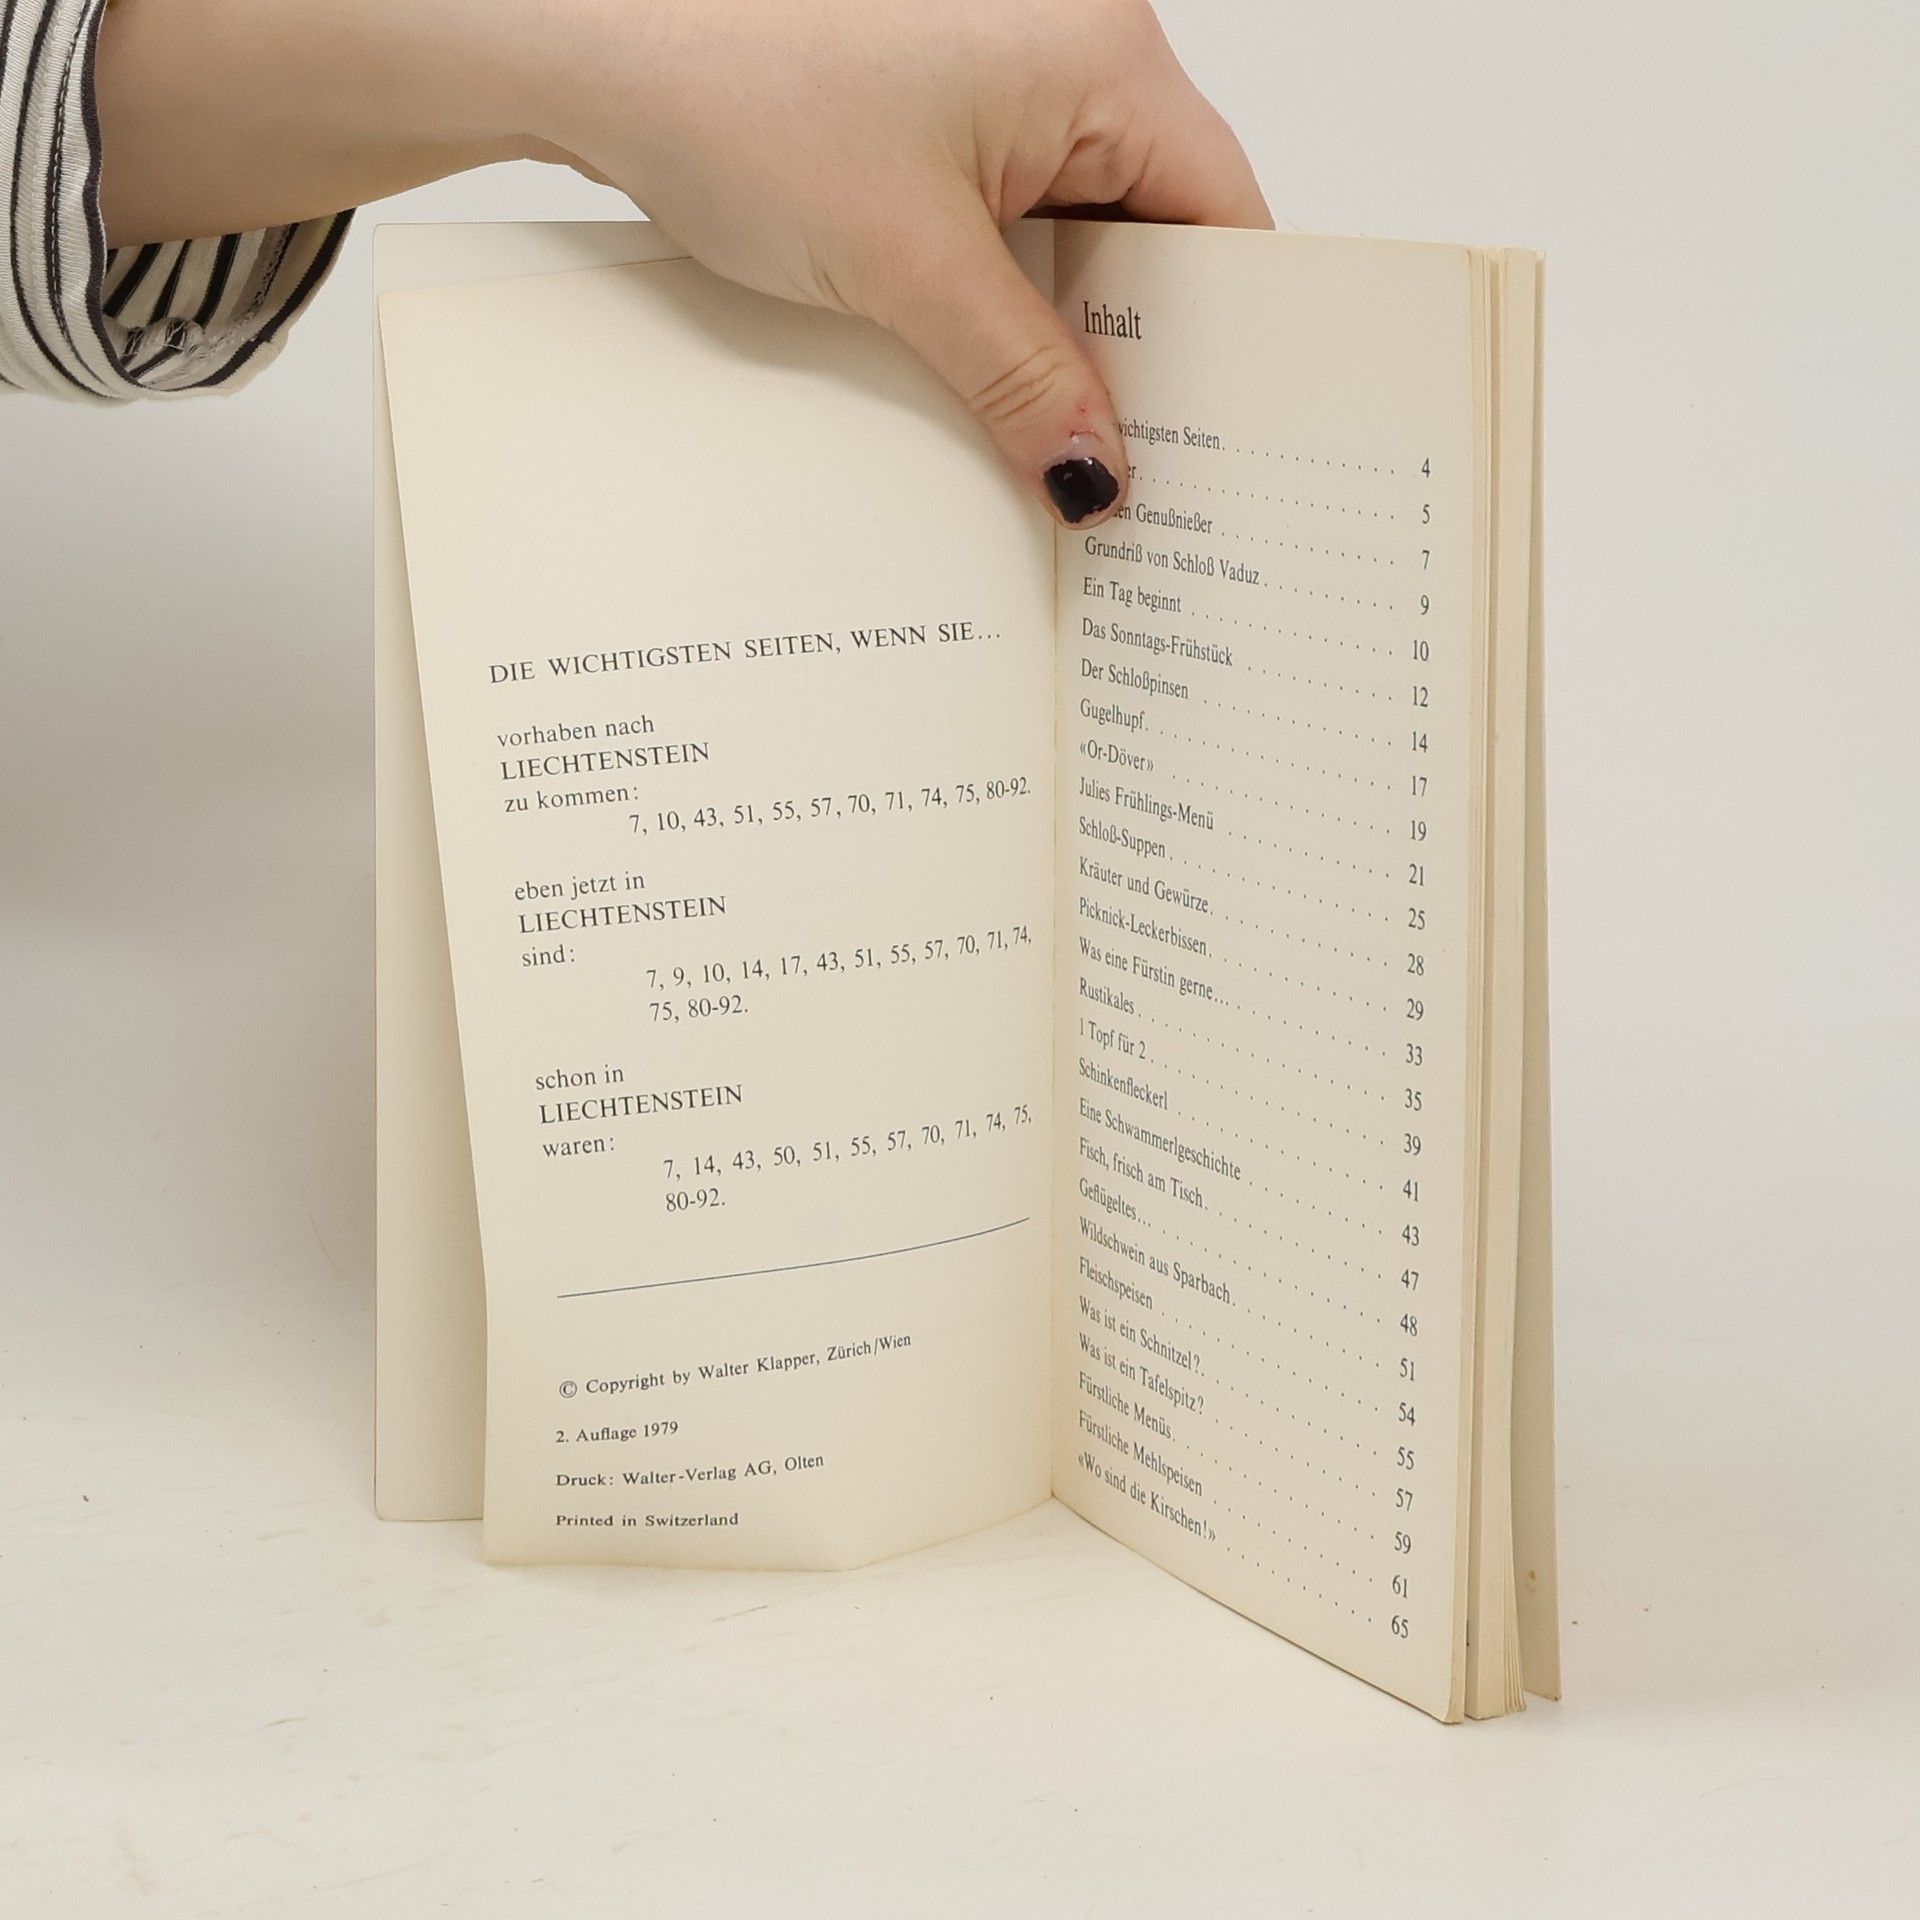 DIE WICHTIGSTEN SEITEN, WENN SIE...
vorhaben nach
LIECHTENSTEIN
zu kommen:
7, 10, 43, 51, 55, 57, 70, 71, 74, 75, 80-92.
eben jetzt in
LIECHTENSTEIN
sind:
7, 9, 10, 14, 17, 43, 51, 55, 57, 70, 71, 74,
75, 80-92.
schon in
LIECHTENSTEIN
waren:
7, 14, 43, 50, 51, 55, 57, 70, 71, 74, 75,
80-92.
© Copyright by Walter Klapper, Zürich/Wien
2. Auflage 1979
Druck: Walter-Verlag AG, Olten
Printed in Switzerland
Inhalt
wichtigsten Seiten . . . . . . . . . . . . 4
. . . . . . . . . . . . . . . 5
Genußnießer . . . . . . . . . . . . 7
Grundriß von Schloß Vaduz . . . . . . . . . 9
Ein Tag beginnt . . . . . . . . . . . . . 10
Das Sonntags-Frühstück . . . . . . . . . . 12
Der Schloßpinsen . . . . . . . . . . . . 14
Gugelhupf . . . . . . . . . . . . . . . 17
«Or-Döver» . . . . . . . . . . . . . . 19
Julies Frühlings-Menü . . . . . . . . . . . 21
Schloß-Suppen . . . . . . . . . . . . . 25
Kräuter und Gewürze . . . . . . . . . . . 28
Picknick-Leckerbissen . . . . . . . . . . . 29
Was eine Fürstin gerne... . . . . . . . . . . 33
Rustikales . . . . . . . . . . . . . . . 35
1 Topf für 2 . . . . . . . . . . . . . . 39
Schinkenfleckerl . . . . . . . . . . . . . 41
Eine Schwammerlgeschichte . . . . . . . . . 43
Fisch, frisch am Tisch . . . . . . . . . . . 47
Geflügeltes... . . . . . . . . . . . . . . 48
Wildschwein aus Sparbach . . . . . . . . . 51
Fleischspeisen . . . . . . . . . . . . . . 54
Was ist ein Schnitzel? . . . . . . . . . . . 55
Was ist ein Tafelspitz? . . . . . . . . . . . 57
Fürstliche Menüs . . . . . . . . . . . . . 59
Fürstliche Mehlspeisen . . . . . . . . . . . 61
«Wo sind die Kirschen!» . . . . . . . . . . 65